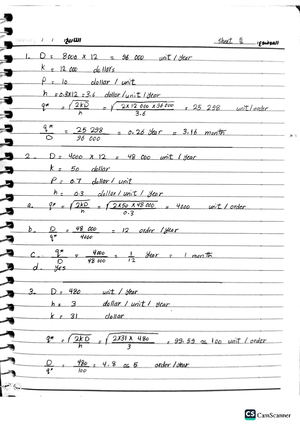 التاريخ: / / sheet 2 الموضوع:
1. D = 8000 x 12 = 96 000 unit / year
K = 12 000 dollars
P = 10 dollar / unit
h = 0.3x12 = 3.6 dollar/unit/year
q* = √2KD/h = √2x12 000x96000/3.6 = 25 298 unit/order
q*/D = 25 298/96 000 = 0.26 year = 3.16 month
2. D = 4000 x 12 = 48 000 unit / year
K = 50 dollar
P = 0.7 dollar / unit
h = 0.3 dollar / unit / year
a. q* = √2KD/h = √2x50x48000/0.3 = 4000 unit / order
b. D/q* = 48 000/4000 = 12 order / year
c. q*/D = 4000/48 000 = 1/12 year = 1 month
d. yes
3. D = 480 unit / year
h = 3 dollar / unit / year
K = 31 dollar
q* = √2KD/h = √2x31x 480/3 = 99.59 ≃ 100 unit / order
D/q* = 480/100 = 4.8 ≃ 5 order/year
CS CamScanner